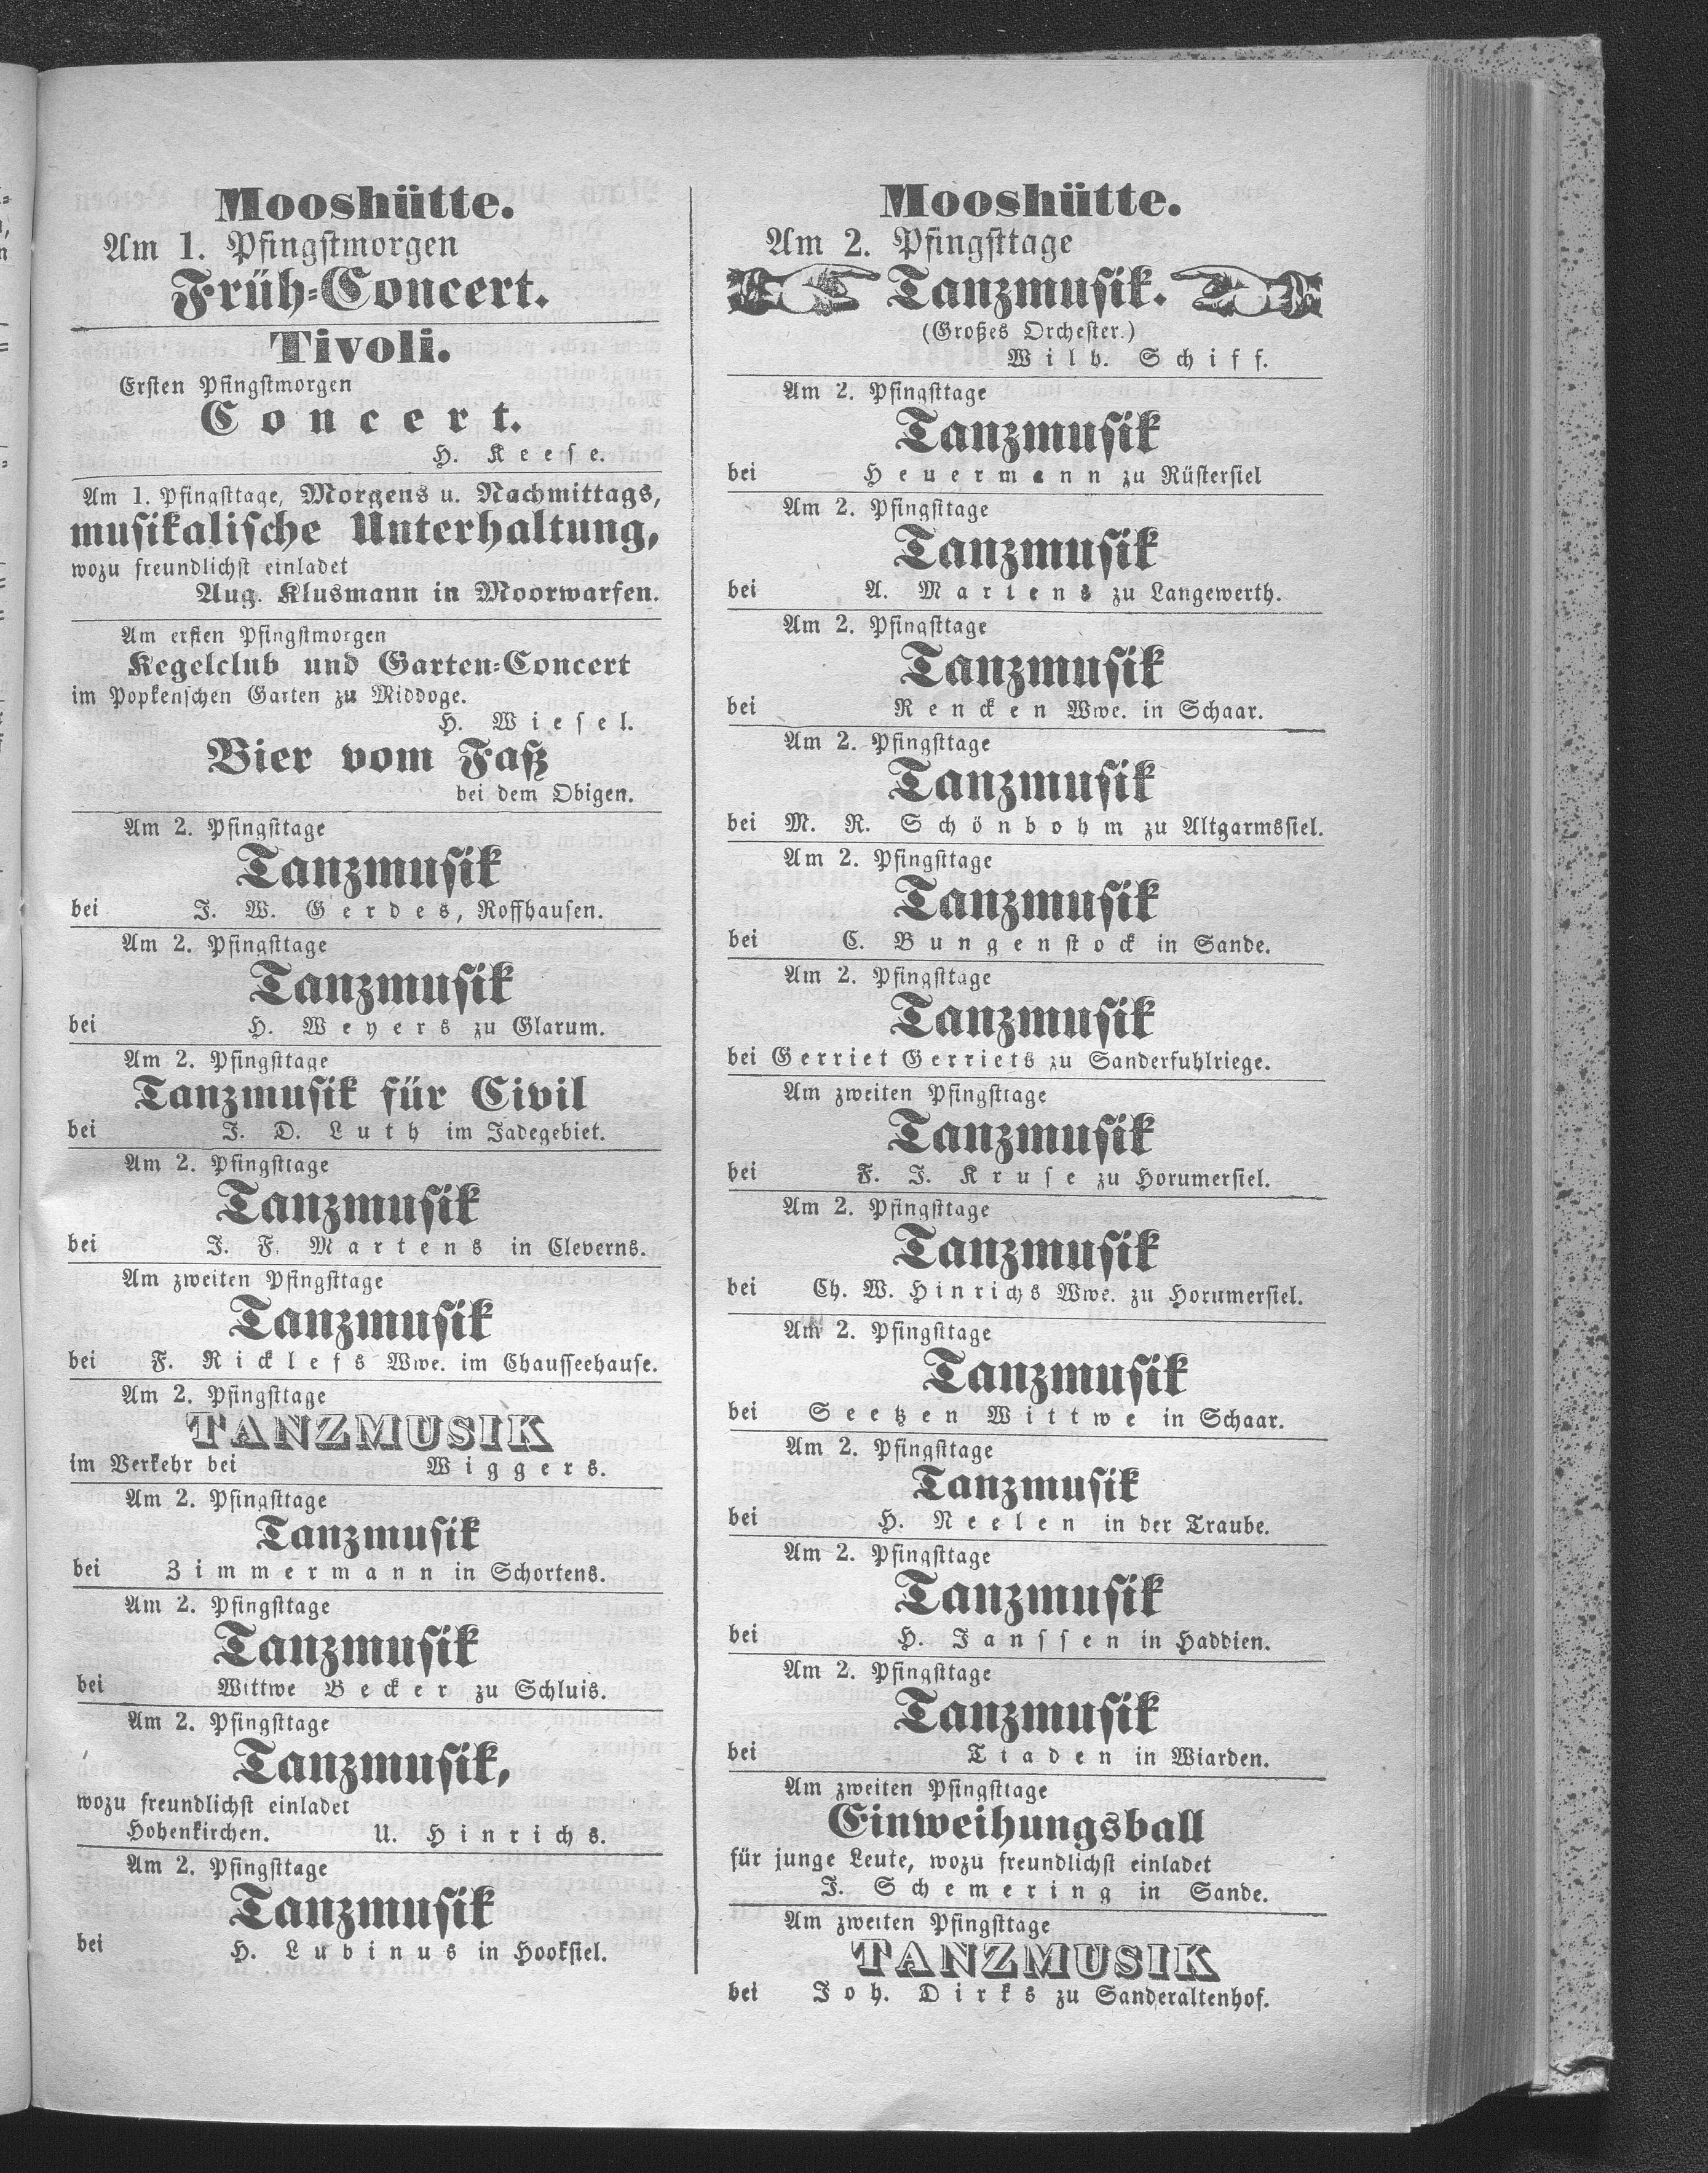 Mooshütte.
Am 1. Pfingstmorgen
Früh-Concert.
Tivoli.
Ersten Pfingstmorgen
Concert.
H. Keese.
Am 1. Pfingsttage, Morgens u. Nachmittags,
musikalische Unterhaltung,
wozu freundlichst einladet
Aug. Klusmann in Moorwarfen.
Am ersten Pfingstmorgen
Kegelclub und Garten-Concert
im Popkenschen Garten zu Middoge.
H. Wiesel.
Bier vom Faß
bei dem Obigen.
Am 2. Pfingsttage
Tanzmusik
bei J. W. Gerdes, Roffhausen.
Am 2. Pfingsttage
Tanzmusik
bei H. Weyers zu Glarum.
Am 2. Pfingsttage
Tanzmusik für Civil
bei J. D. Luth im Jadegebiet.
Am 2. Pfingsttage
Tanzmusik
bei J. F. Martens in Cleverns.
Am zweiten Pfingsttage
Tanzmusik
bei F. Ricklefs Wwe. im Chausseehause.
Am 2. Pfingsttage
TANZMUSIK
im Verkehr bei Wiggers.
Am 2. Pfingsttage
Tanzmusik
bei Zimmermann in Schortens.
Am 2. Pfingsttage
Tanzmusik
bei Wittwe Becker zu Schluis.
Am 2. Pfingsttage
Tanzmusik,
wozu freundlichst einladet
Hohenkirchen. U. Hinrichs.
Am 2. Pfingsttage
Tanzmusik
bei H. Lubinus in Hooksiel.
Mooshütte.
Am 2. Pfingsttage
Tanzmusik.
(Großes Orchester.)
Wilh. Schiff.
Am 2. Pfingsttage
Tanzmusik
bei Heuermann zu Rüstersiel
Am 2. Pfingsttage
Tanzmusik
bei A. Martens zu Langewerth.
Am 2. Pfingsttage
Tanzmusik
bei Rencken Wwe. in Schaar.
Am 2. Pfingsttage
Tanzmusik
bei M. R. Schönbohm zu Altgarmssiel.
Am 2. Pfingsttage
Tanzmusik
bei C. Bungenstock in Sande.
Am 2. Pfingsttage
Tanzmusik
bei Gerriet Gerriets zu Sanderfuhlriege.
Am zweiten Pfingsttage
Tanzmusik
bei F. J. Kruse zu Horumersiel.
Am 2. Pfingsttage
Tanzmusik
bei Ch. W. Hinrichs Wwe. zu Horumersiel.
Am 2. Pfingsttage
Tanzmusik
bei Seetzen Wittwe in Schaar.
Am 2. Pfingsttage
Tanzmusik
bei H. Neelen in der Traube.
Am 2. Pfingsttage
Tanzmusik
bei H. Janssen in Haddien.
Am 2. Pfingsttage
Tanzmusik
bei Tiaden in Wiarden.
Am zweiten Pfingsttage
Einweihungsball
für junge Leute, wozu freundlichst einladet
J. Schemering in Sande.
Am zweiten Pfingsttage
TANZMUSIK
bei Joh. Dirks zu Sanderaltenhof.